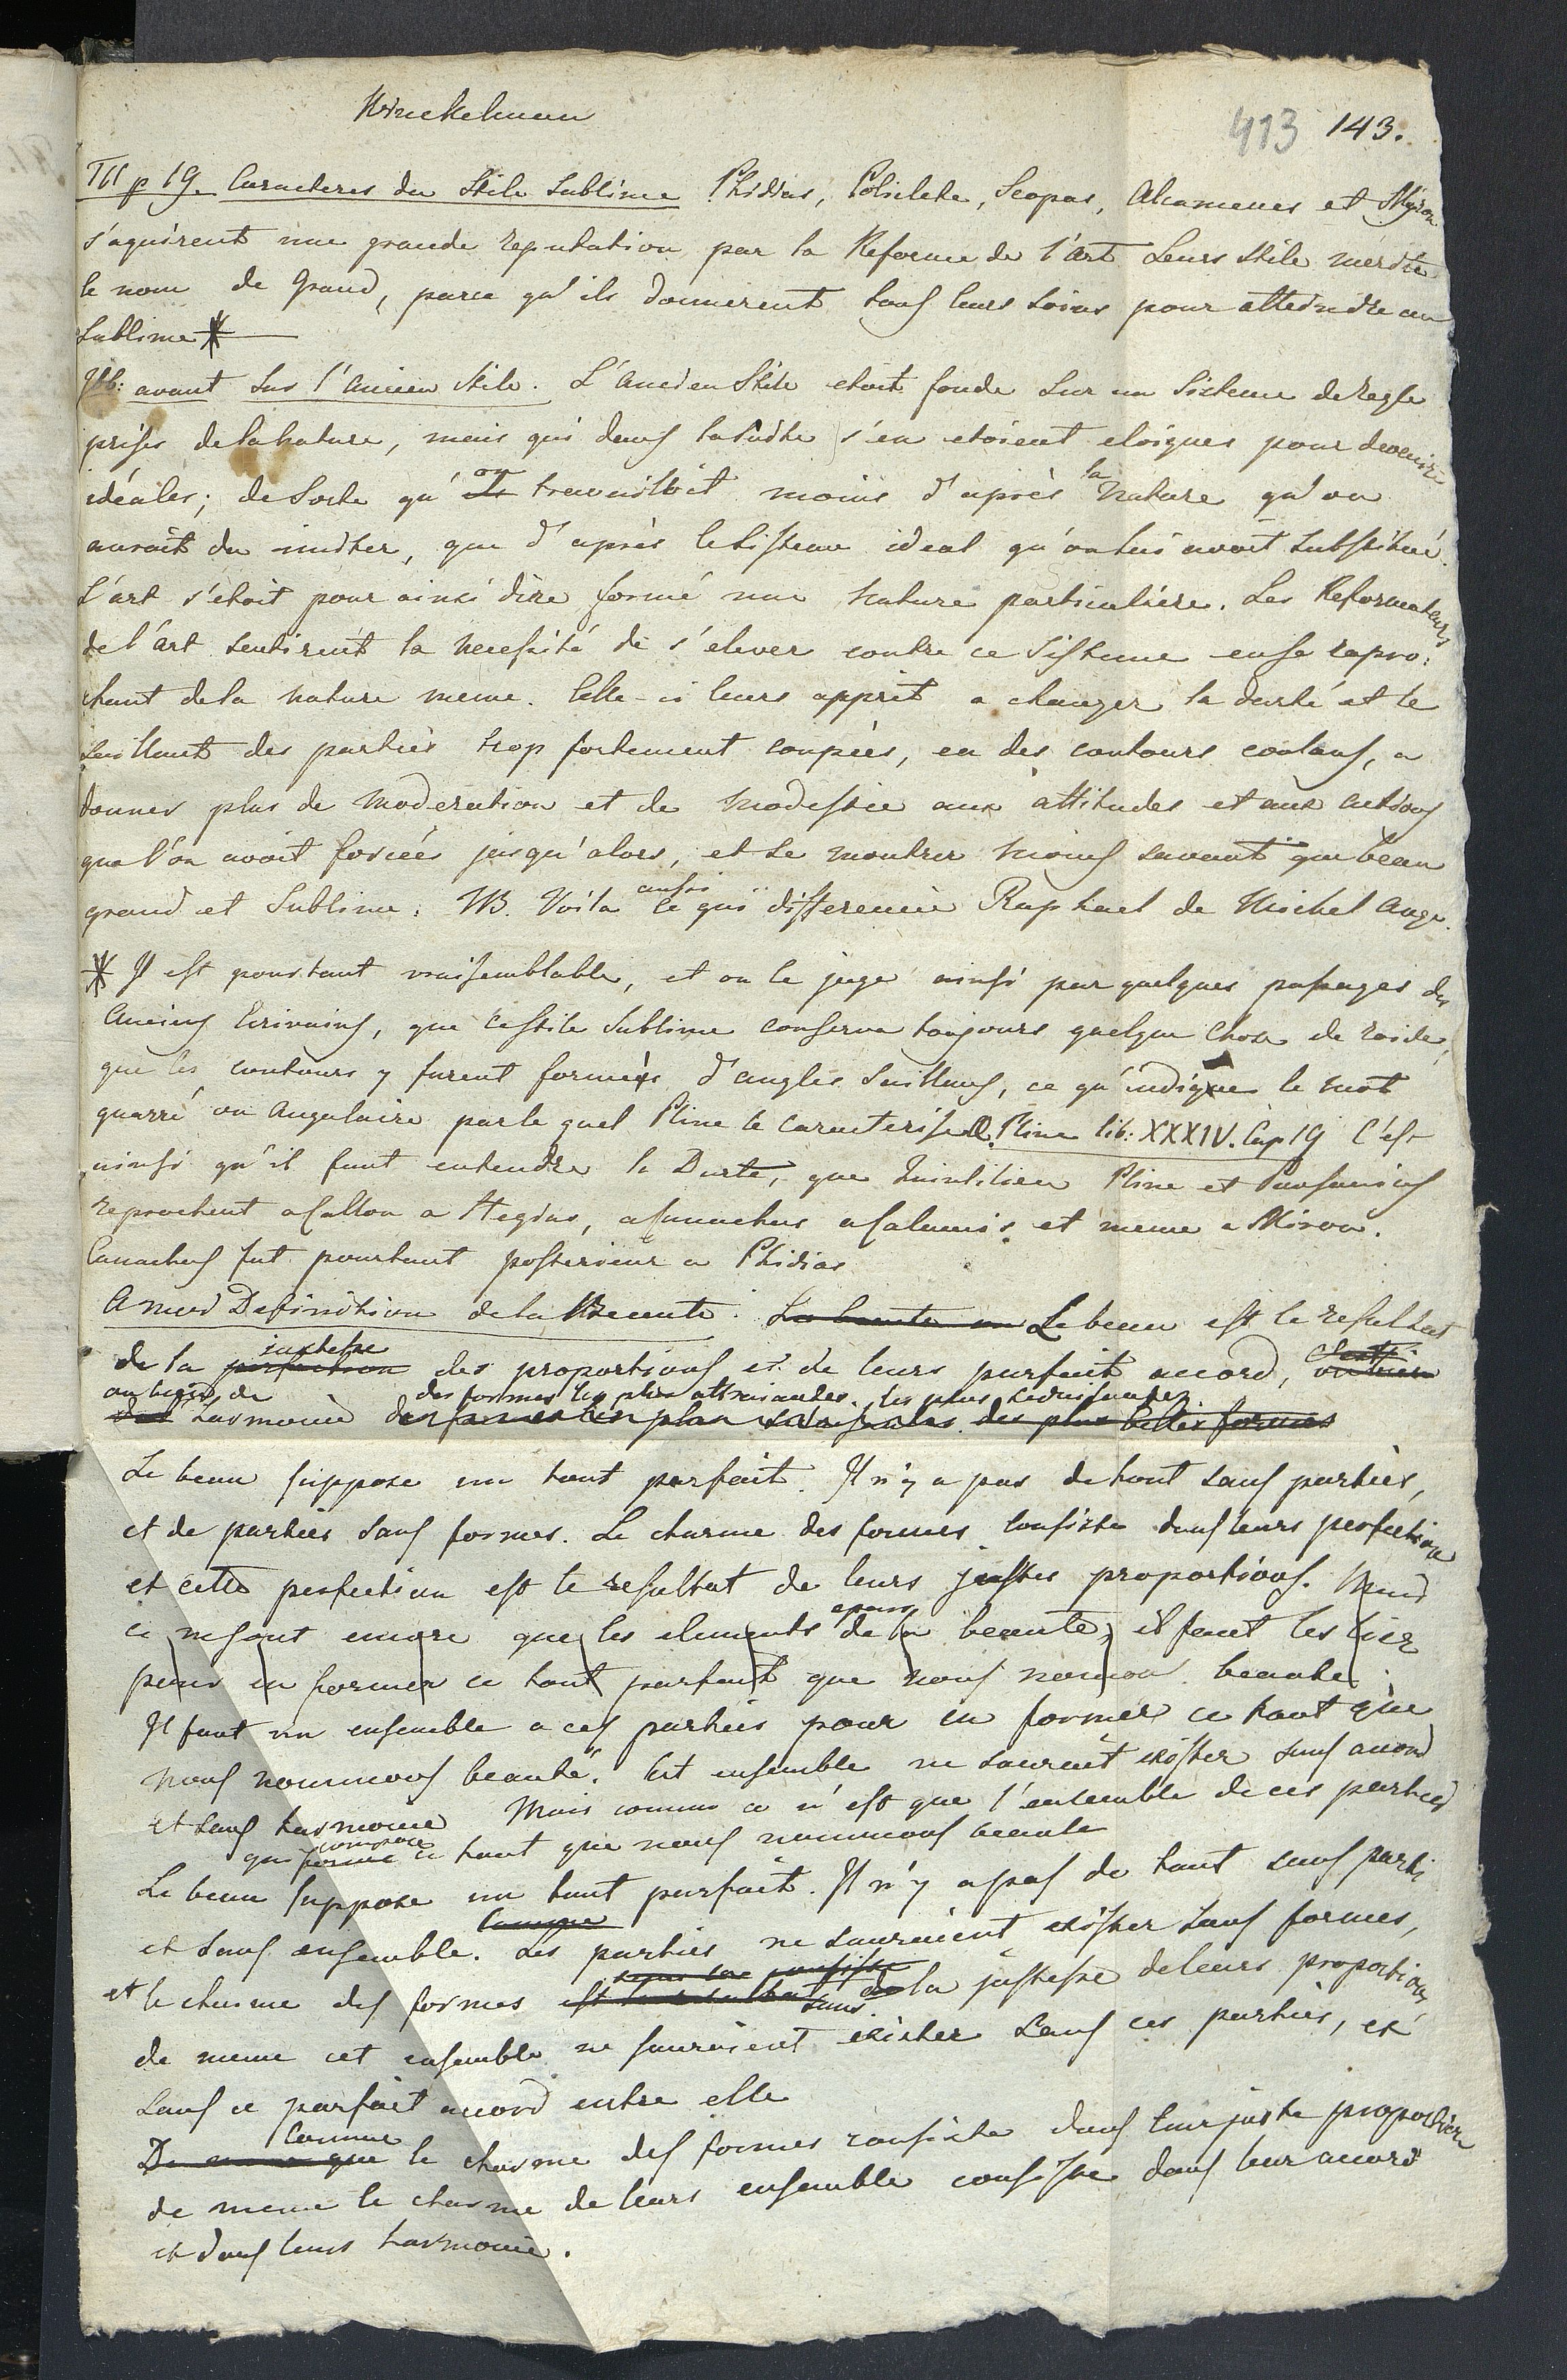 Winckelmann
413 143.
TII p 19. Caracteres du Stile Sublime Phidias, Policlete, Scopas, Alcamenes et Myron
s'aquirent une grande reputation par la Reforme de l'art Leurs stile merite
le nom de Grand, parce qu'ils donnerent tous leurs soins pour atteindre au
Sublime *
avant sur l'ancien stile. L'ancien Stile etoit fondé sur un Sisteme de regle
prises de la nature, mais qui dans la suite s'en etoient eloignes pour devenir
idéales; de Sorte qu'on travailloit moins d'après la Nature qu'on
auroit du imiter, que d'après le Sisteme ideal qu'on lui avoit substitué.
L'art s'étoit pour ainsi dire formé une Nature particulière. Les Reformateurs
de l'art sentirent la necessité de s'elever contre ce Sisteme en se rapro:
chant de la nature meme. Celle-ci leurs apprit a changer la dureté et le
saillant des parties trop fortement coupées, en des contours coulans, a
donner plus de moderation et de modestie aux attitudes et aux actions
que l'on avoit forcées jusqu'alors, et se montrer moins savant que beau
grand et Sublime. NB. Voila aussi ce qui differencie Raphael de Michel Ange.
* Il est pourtant vraisemblable, et on le juge ainsi par quelques passages des
Anciens Ecrivains, que ce stile Sublime conserva toujours quelque chose de roide,
que les contours y furent formés d'angles saillans, ce qu'indique le mot
quarré ou Angulaire par le quel Pline le caracterise. Pline lib: XXXIV. Cap 19 C'est
ainsi qu'il faut entendre la Dureté, que Quintilien Pline et Pausanias
reprochent a Callon a Hegias, a Canachus a Calamis et meme a Miron.
Canachus fut pourtant posterieur a Phidias
Definition de la Beauté. La beauté Le beau est le resultat
de la perfection justesse des proportions et de leurs parfait accord, ou bien
ou bien de l'harmonie des formes les plus attraiantes. les plus seduisantes des plus belles formes
Le beau suppose un tout parfait. Il n'y a pas de tout sans parties,
et de parties sans formes. Le charme des formes consiste dans leurs perfection
et cette perfection est le resultat de leurs justes proportions. Mais
ce ne sont encore que les elements epars de la beauté, il faut les lier
pour en former ce tout parfait que nous nommons beauté.
Il faut un ensemble a ces parties pour en former ce tout que
nous nommons beauté. Cet ensemble ne sauroit exister sans accord
et sans harmonie Mais comme ce n'est que l'ensemble de ces parties
qui forme compose ce tout que nous nommons beauté
Le beau suppose un tout parfait. Il n'y a pas de tout sans parti
et sans ensemble. Comme Les parties ne sauroient exister sans formes,
et le charme des formes est le resultat sans consiste de la justesse de leurs proportions
de meme cet ensemble ne sauroient exister sans ces parties, et
sans ce parfait accord entre elle
De meme que Comme le charme des formes consiste dans leur juste proportion
de meme le charme de leurs ensemble consiste dans leur accord
et dans leurs harmonie.